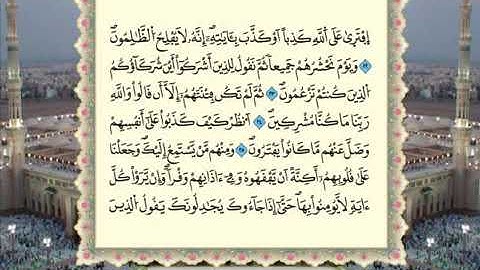 اِفْتَر۪يٰ عَلَي اَ۬للَّهِ كَذِباً اَوْ كَذَّبَ بِـَٔايَٰتِهِۦٓۖ إِنَّهُۥ لَا يُفْلِحُ اُ۬لظَّٰلِمُونَۖ
۞ وَيَوْمَ نَحْشُرُهُمْ جَمِيعاٗ ثُمَّ نَقُولُ لِلذِينَ أَشْرَكُوٓاْ أَيْنَ شُرَكَآؤُكُمُ
اُ۬لذِينَ كُنتُمْ تَزْعُمُونَۖ ۞ ثُمَّ لَمْ تَكُن فِتْنَتَهُمُۥٓ إِلَّآ أَن قَالُواْ وَاللَّهِ
رَبِّنَا مَا كُنَّا مُشْرِكِينَۖ ۞ اَ۟نظُرْ كَيْفَ كَذَبُواْ عَلَيٰٓ أَنفُسِهِمْ
وَضَلَّ عَنْهُم مَّا كَانُواْ يَفْتَرُونَۖ ۞ وَمِنْهُم مَّنْ يَّسْتَمِعُ إِلَيْكَۖ وَجَعَلْنَا
عَلَيٰ قُلُوبِهِمُۥٓ أَكِنَّةً اَنْ يَّفْقَهُوهُ وَفِےٓ ءَاذَانِهِمْ وَقْراٗۖ وَإِنْ يَّرَوْاْ كُلَّ
ءَايَةٖ لَّا يُومِنُواْ بِهَاۖ حَتَّيٰٓ إِذَا جَآءُوكَ يُجَٰدِلُونَكَ يَقُولُ اُ۬لذِينَ